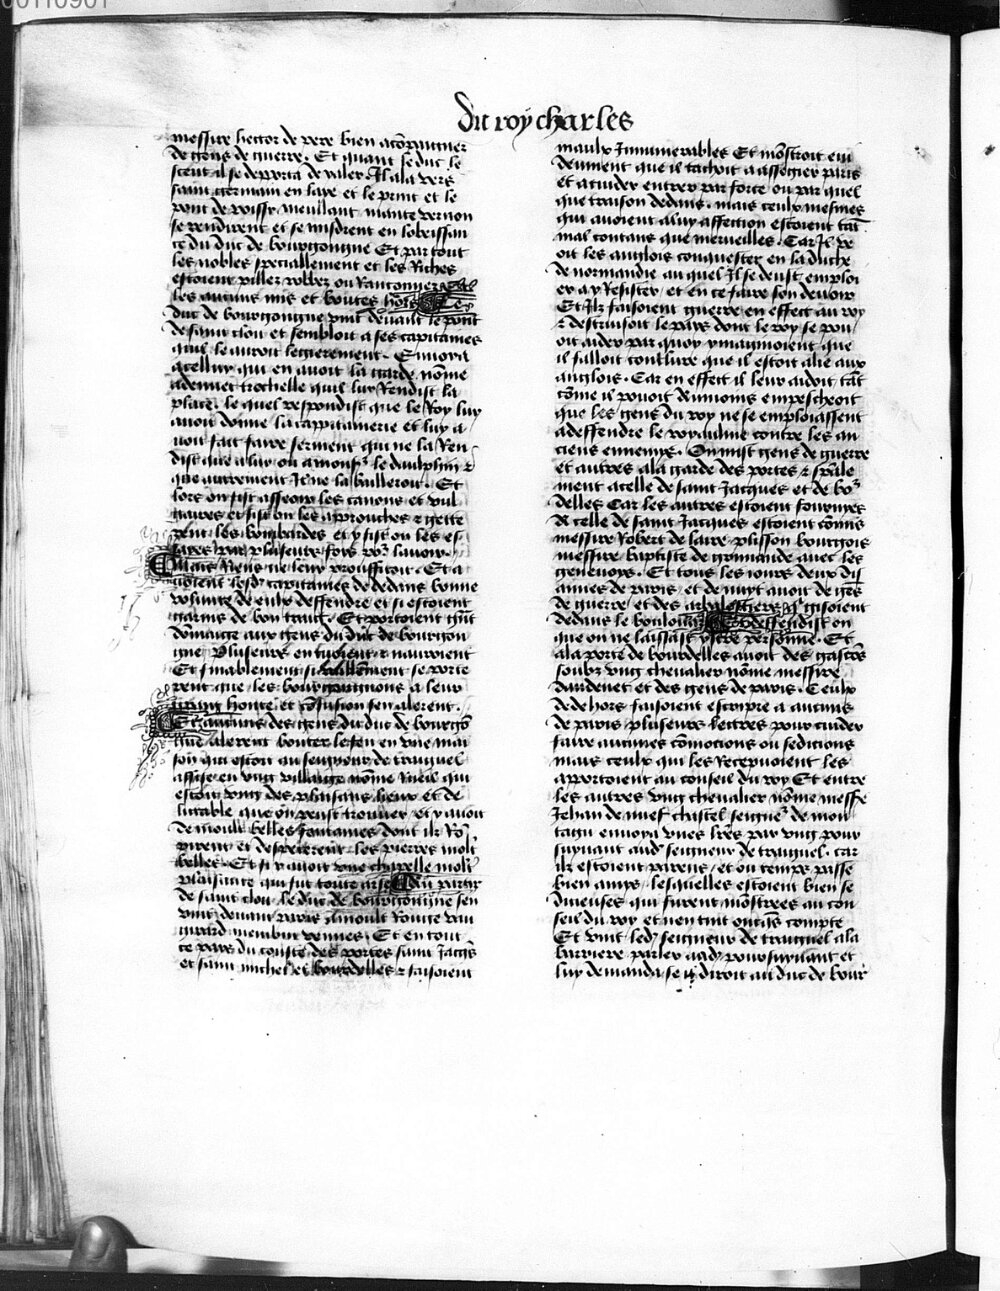 du roy charles
messire hector de pere bien acõpaignier
de gens de guerre. Et quant le duc le
sceut il se deporta de y aler. Il ala vers
saint germain en laye et le print et le
pont de poissy. meullant mante vernon
se rendirent et se misdrent en lobeissan
ce du duc de bourgongne Et par tout
les nobles speciallement et les riches
estoient pillez robbez ou ranconnez et
les aucuns mis et boutes hors Le
duc de bourgongne vint deuant le pont
de saint clou et sembloit a ses capitaines
quil lauroit legierement. Enuoya
a celluy qui en auoit la garde nõme
adennet trochelle quil luy rendist la
place. le quel respondist que le Roy luy
auoit donne la capitainerie et luy a
uoit fait faire serment qui ne la ren
dist que a luy ou a monsr le daulphin et
que autrement Il ne la bailleroit. Et
lors on fist asseoir les canons et vul
gaires et fist on les approuches et gette
rent les bombardes et y fist on les es
saies par plusieurs fois por lauoir
Mais riens ne leur prouffitoit. Et a
uoient lesd capitaines de dedans bonne
volunte de eulx deffendre et si estoient
garnis de bon trait. Et portoient grãt
dõmaige aux gens du duc de bourgon
gne. Plusieurs en tuoient et nauroient
Et finablement si vaillamment se porte
rent que les bourguignons a leur
grant honte et cõfusion sen alerent.
Et aucuns des gens du duc de bourgõ
gne alerent bouter le feu en vne mai
son qui estoit au seigneur de trauguel
assise en vng villaige nõme Rueil qui
estoit vng des plaisans lieux et de
lictable que on peust trouuer. et y auoit
de moult belles fontaines dont ilz rõ
pirent et despecerent les pierres molt
belles. Et si y auoit vne chapelle molt
plaisante qui fut toute arse Au partir
de saint clou le duc de bourgongne sen
vint deuant paris a moult rouge vau
girard meurbut vennes. Et en tout
ce pays du couste des portes saint Jacqs
et saint michel et bourdelles et faisoient
maulx Innumerables Et mõstroit eui
denment que il tachoit a assegier paris
et a cuider entrer par force ou par quel
que traison dedans. mais ceulx mesmes
qui auoient a luy affection estoient tãt
mal contans que merueilles. Car Il ve
oit les anglois conquester en la duche
de normandie au quel Il se deust emploi
er a y resister. et en ce faire son deuoir
Et Ilz faisoient guerre en effect au roy
et destruisoit le pays dont le roy se pou
oit aider par quoy ymaginoient que
il falloit conclure que il estoit alie aux
anglois. Car en effect il leur aidoit tãt
cõme il pouoit de moins empeschoit
que les gens du roy ne se emploiassent
a deffendre le royaulme contre les an
ciens ennemys. On mist gens de guerre
et autres a la garde des portes et spãle
ment a celle de saint Jacques et de bo
delles Car les autres estoient fournyes
A celle de saint Jacques estoient cõmis
messire Robert de laire plisson bourgois
messire baptiste de grimaude auec les
geneuoys. Et tous les iours deux dis
annies de paris. et de nuyt auoit de gẽs
de guerre et des arbalestriers qui gisoient
dedans le bouloüart Et deffendist on
que on ne laissast ystre personne. Et
a la porte de bourdelles auoit des gascõs
soubz vng chevalier nõme messire
daudenet et des gens de paris. Ceulx
de dehors faisoient escripre a aucuns
de paris plusieurs lettres pour cuider
faire aucunes cõmocions ou sedicions
mais ceulx qui les receuoient les
apportoient au conseil du roy Et entre
les autres vng chevalier nõme messre
Jehan de nuef chastel seignr de mon
tagu enuoya vnes lrẽs par vng pour
suyuant aud seigneur de trauguel. car
ilz estoient parens et ou temps passe
bien amys. lesquelles estoient bien se
dicieuses qui furent mõstrees au con
seil du roy et nen tint oncqs compte
Et vint led seigneur de trauguel a la
barriere parler aud poursuyuant et
luy demanda se Il diroit au duc de bour